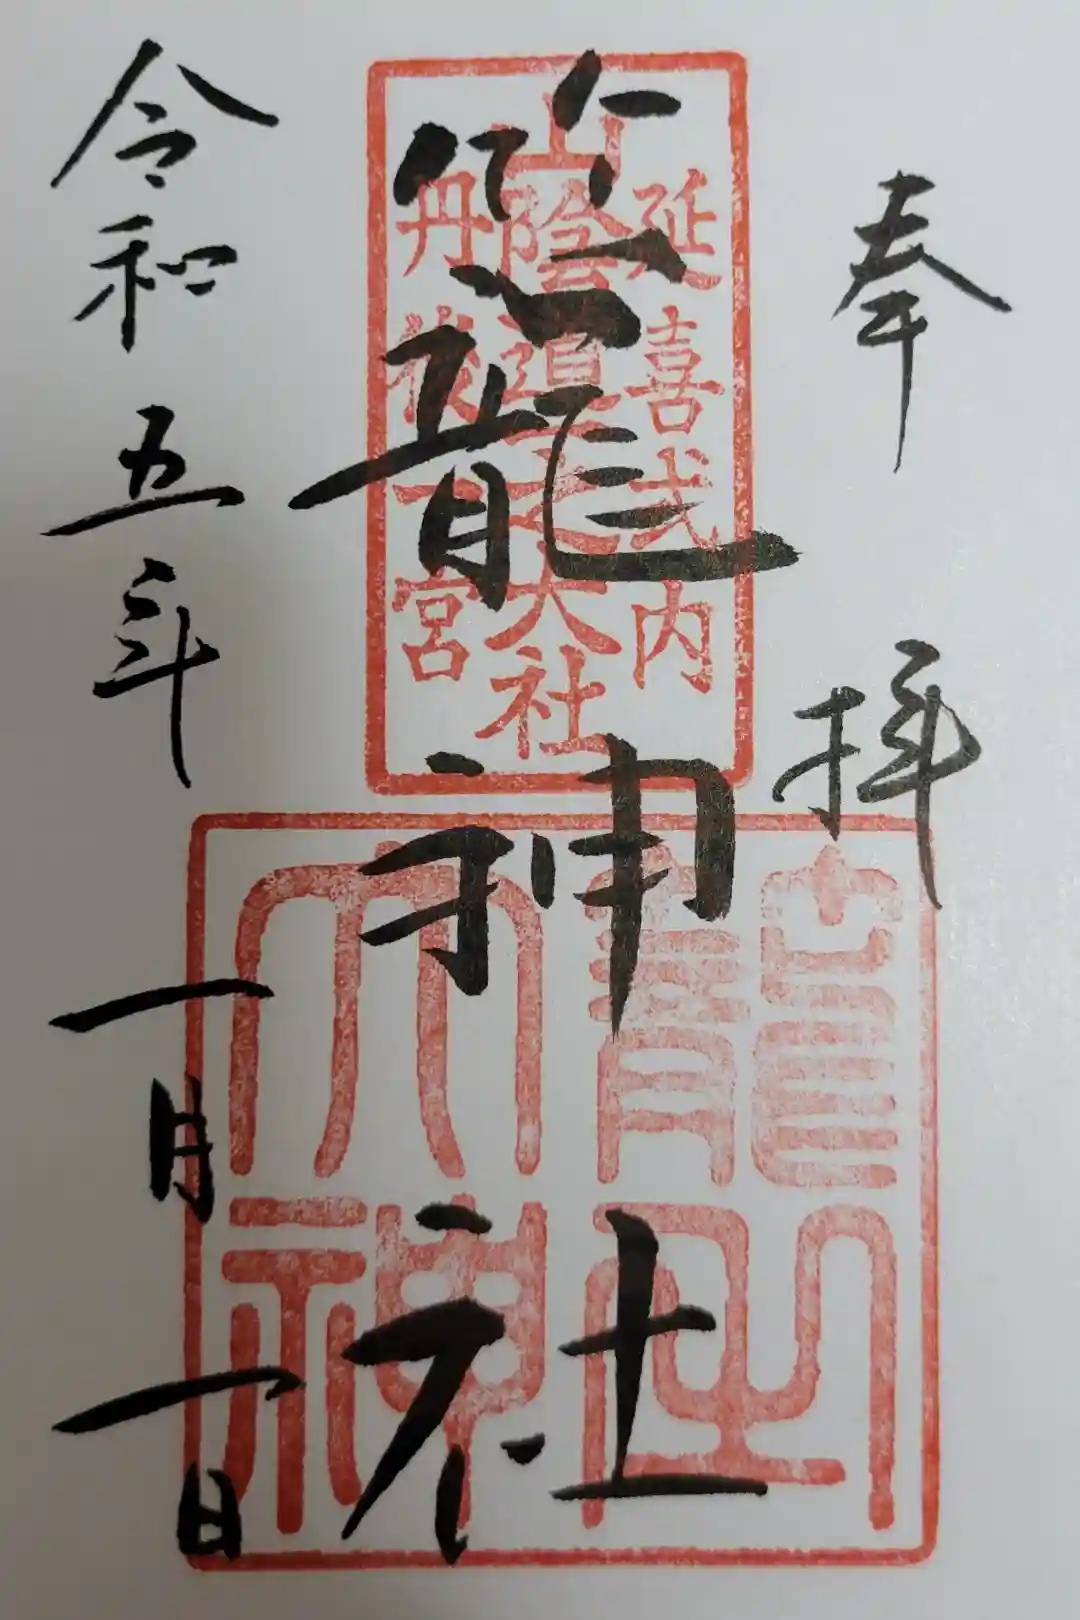 奉拝
延喜式内
山陰道之大社
丹後一宮
籠神社
令和五年一月一日